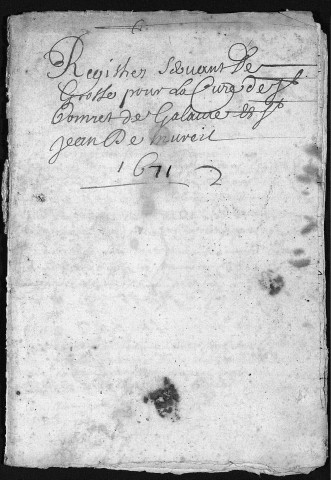 Registre seruant De
Grosse pour La Cure de St
Comret de Galaure et St
Jean De mureil
1671